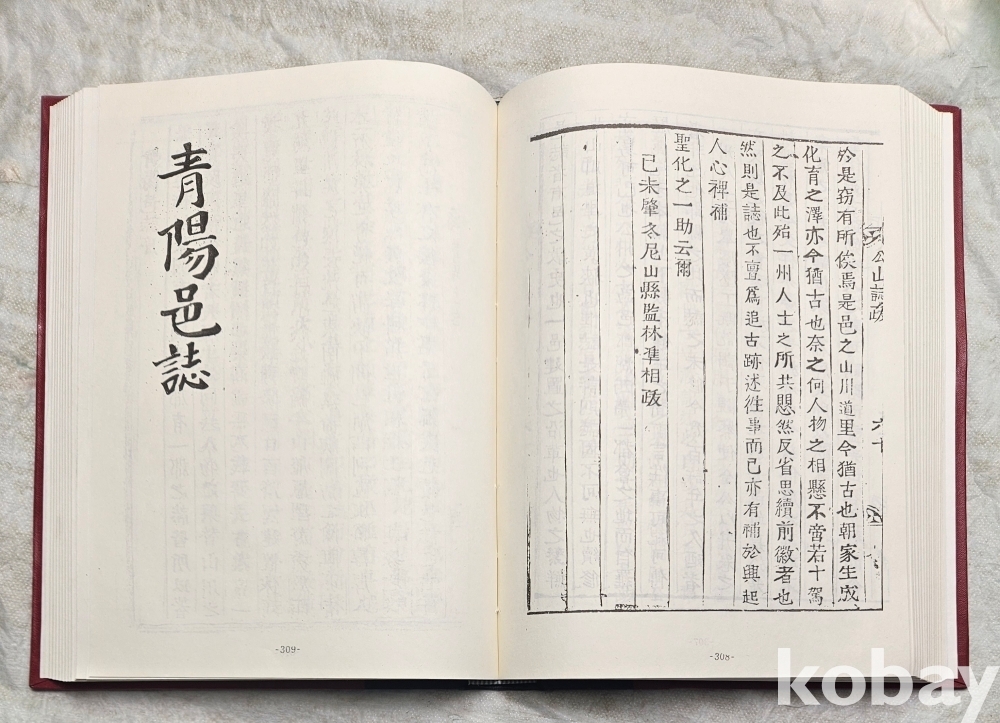 公山誌跋
六十
於是窃有所俟焉是邑之山川道里今猶古也朝家生成
化育之澤亦今猶古也奈之何人物之相懸不啻若十駕
之不及此殆一州人士之所共愳然反省思續前徽者也
然則是誌也不亶爲追古跡述徃事而已亦有補於興起
人心裨補
聖化之一助云爾
己未肇冬尼山縣監林準相跋
-308-
青陽邑誌
-309-
kobay